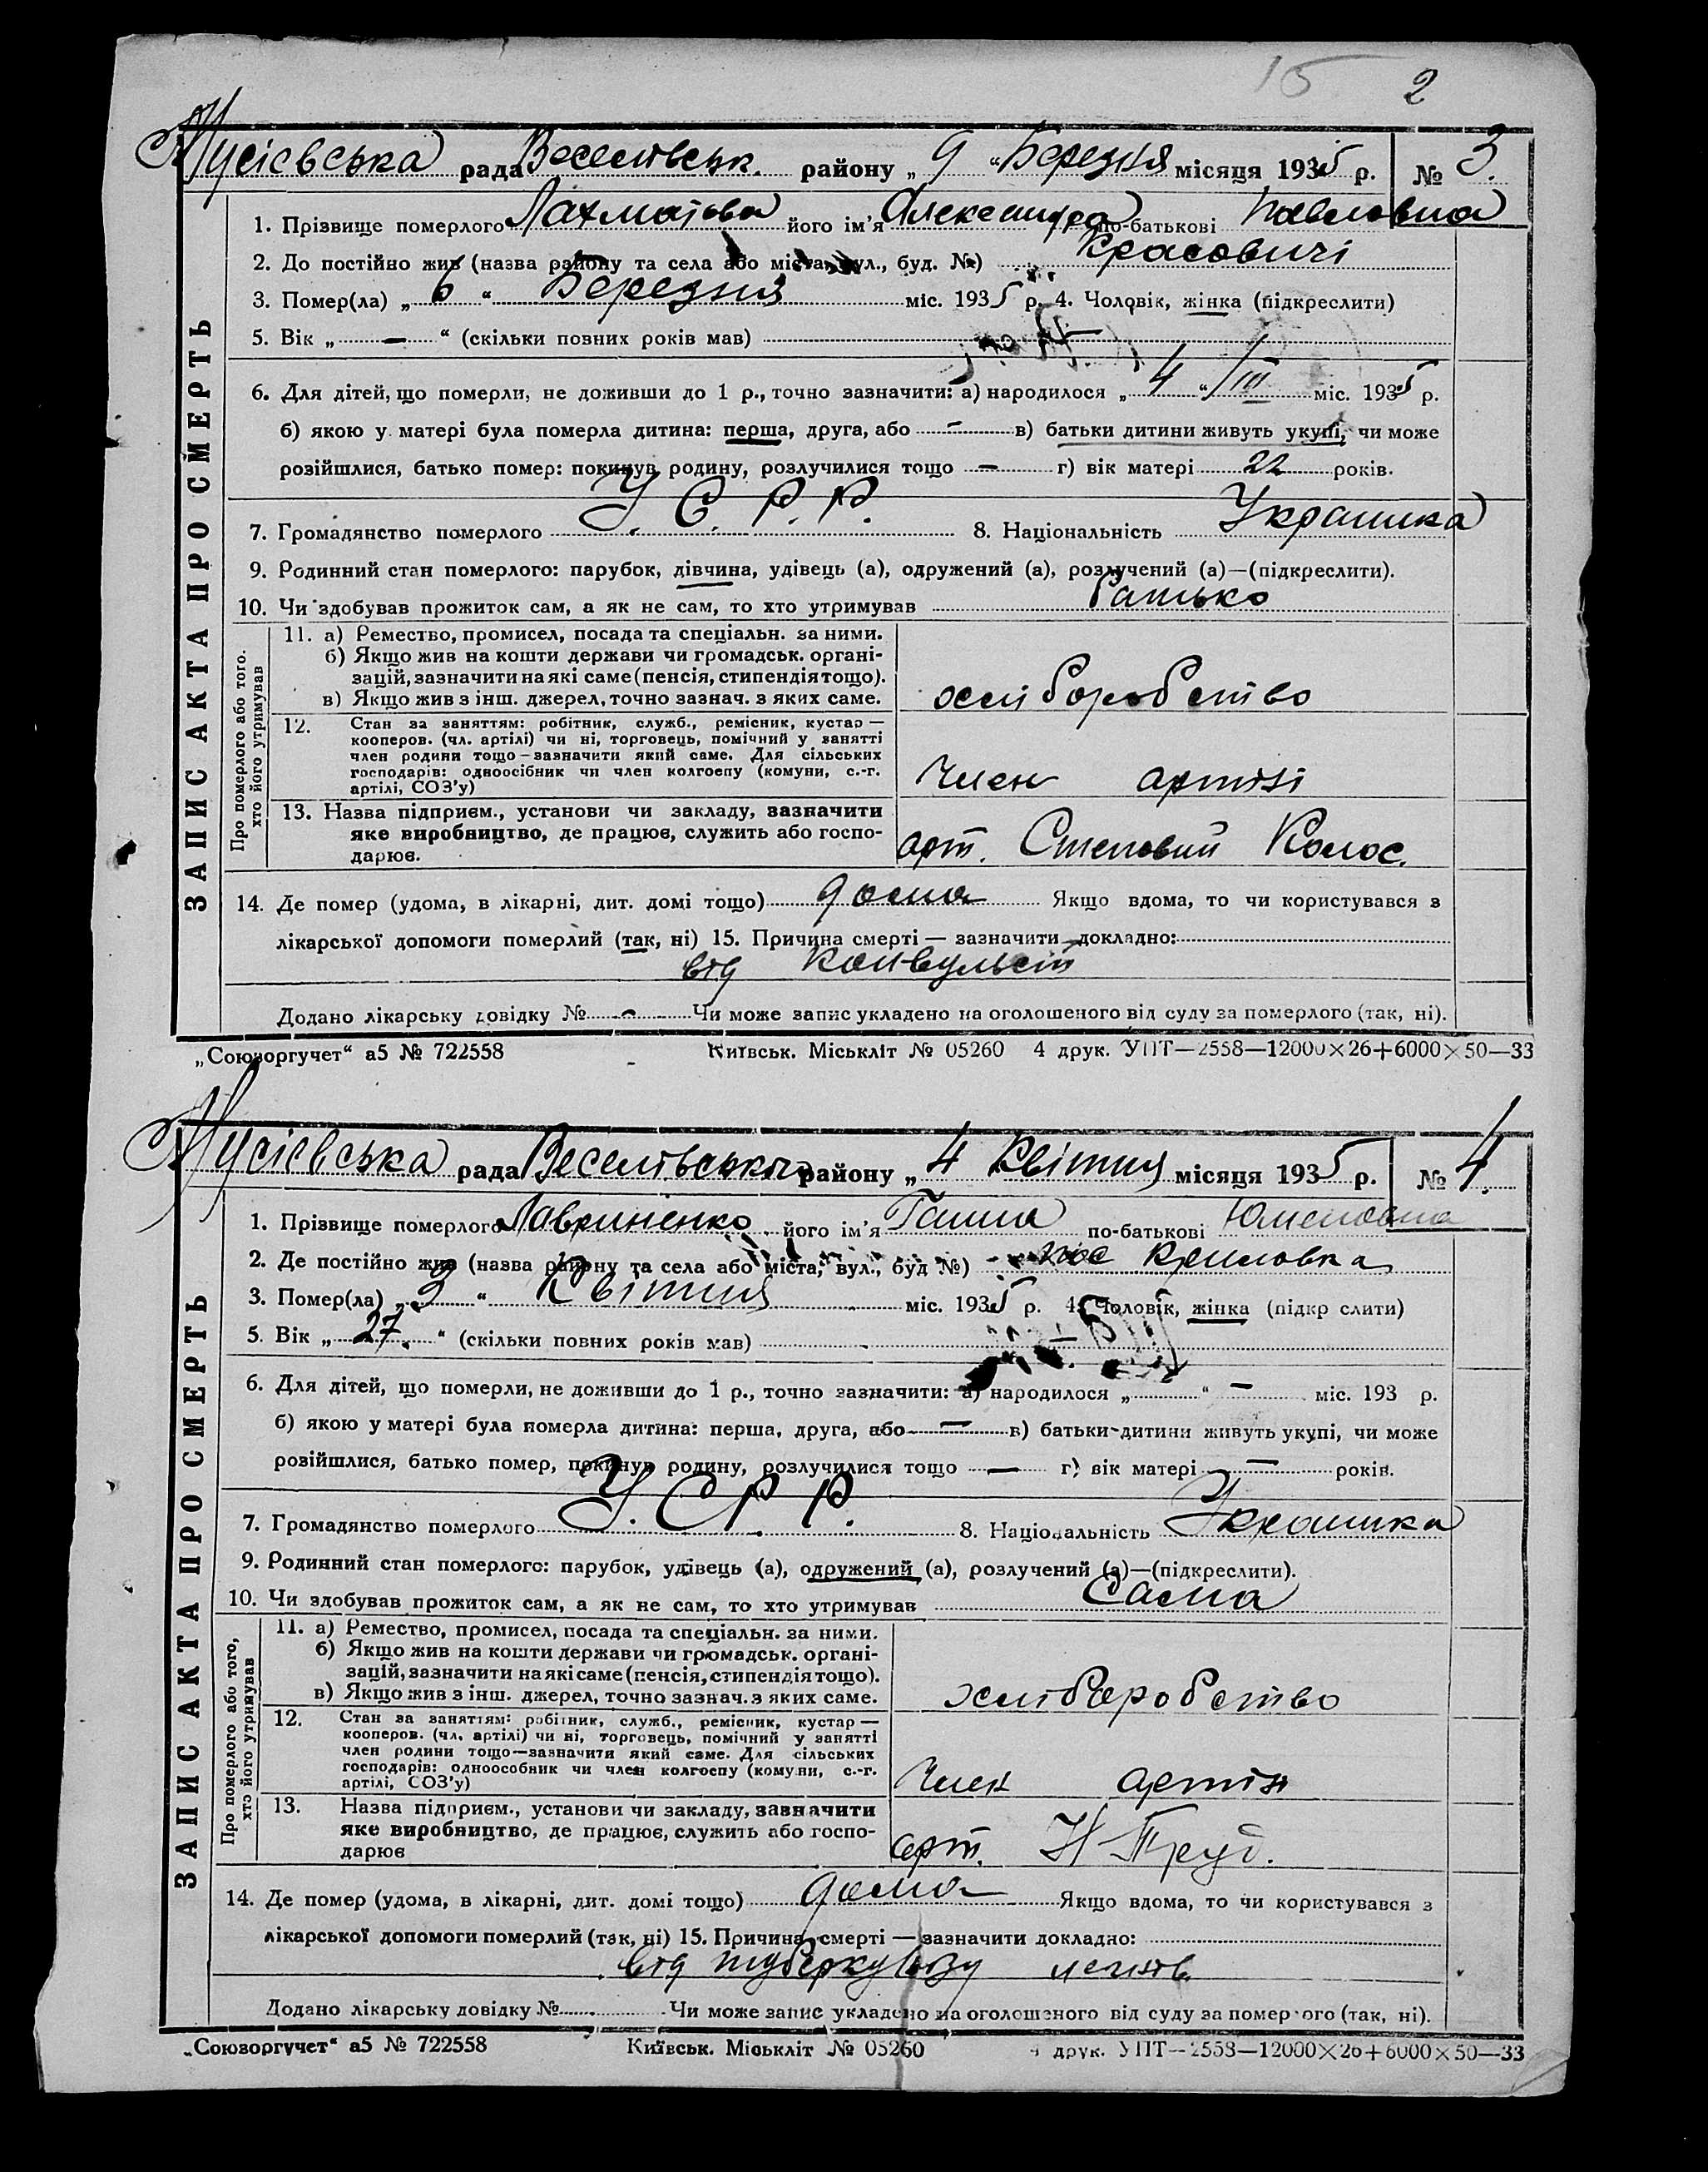 15 2
Мусієвська рада Веселівськ. району „ 9 “ Березня місяця 1935 р. № 3.
ЗАПИС АКТА ПРО СМЕРТЬ
1. Прізвище померлого Лахматова його ім'я Александра по-батькові Павловна
2. До постійно жив (назва району та села або міста, вул., буд. №) Красовичі
3. Помер(ла) „ 6 “ Березня міс. 1935 р. 4. Чоловік, жінка (підкреслити)
5. Вік „ — “ (скільки повних років мав) —
6. Для дітей, що померли, не доживши до 1 р., точно зазначити: а) народилося „ 4 “ III міс. 1935 р.
б) якою у матері була померла дитина: перша, друга, або — в) батьки дитини живуть укупі, чи може
розійшлися, батько помер: покинув родину, розлучилися тощо — г) вік матері 22 років.
7. Громадянство померлого У. С. Р. Р. 8. Національність Украинка
9. Родинний стан померлого: парубок, дівчина, удівець (а), одружений (а), розлучений (а)—(підкреслити).
10. Чи здобував прожиток сам, а як не сам, то хто утримував батько
Про померлого або того.
хто його утримував
11. а) Ремество, промисел, посада та спеціальн. за ними.
б) Якщо жив на кошти держави чи громадськ. органі-
зацій, зазначити на які саме (пенсія, стипендія тощо).
в) Якщо жив з інш. джерел, точно зазнач. з яких саме.
хліборобство
12. Стан за заняттям: робітник, служб., ремісник, кустар —
кооперов. (чл. артілі) чи ні, торговець, помічний у занятті
член родини тощо — зазначити який саме. Для сільських
господарів: одноосібник чи член колгоспу (комуни, с.-г.
артілі, СОЗ'у)
Член артілі
13. Назва підприєм., установи чи закладу, зазначити
яке виробництво, де працює, служить або госпо-
дарює.
арт. Степовий Колос.
14. Де помер (удома, в лікарні, дит. домі тощо) дома Якщо вдома, то чи користувався з
лікарської допомоги померлий (так, ні) 15. Причина смерті — зазначити докладно:
від конвульсій
Додано лікарську довідку № — Чи може запис укладено на оголошеного від суду за померлого (так, ні).
„Союзоргучет“ а5 № 722558 Київськ. Міськліт № 05260 4 друк. УПТ—2558—12000×26+6000×50—33
Мусієвська рада Веселівського району „ 4 Квітня місяця 1935 р. № 4.
ЗАПИС АКТА ПРО СМЕРТЬ
1. Прізвище померлого Лавриненко його ім'я Ганна по-батькові
2. Де постійно жив (назва району та села або міста, вул., буд №)
3. Помер(ла) „ 2 “ Квітня міс. 1935 р. 4. Чоловік, жінка (підкр слити)
5. Вік „ 27. “ (скільки повних років мав) —
6. Для дітей, що померли, не доживши до 1 р., точно зазначити: а) народилося „ “ — міс. 193 р.
б) якою у матері була померла дитина: перша, друга, або — в) батьки дитини живуть укупі, чи може
розійшлися, батько помер, покинув родину, розлучилися тощо — г) вік матері — років.
7. Громадянство померлого У. С Р. Р. 8. Національність Украинка
9. Родинний стан померлого: парубок, удівець (а), одружений (а), розлучений (а)—(підкреслити).
10. Чи здобував прожиток сам, а як не сам, то хто утримував Сама
Про померлого або того,
хто його утримував
11. а) Ремество, промисел, посада та спеціальн. за ними.
б) Якщо жив на кошти держави чи громадськ. органі-
зацій, зазначити на які саме (пенсія, стипендія тощо).
в) Якщо жив з інш. джерел, точно зазнач. з яких саме.
хліборобство
12. Стан за заняттям: робітник, служб., ремісник, кустар —
кооперов. (чл. артілі) чи ні, торговець, помічний у занятті
член родини тощо—зазначити який саме. Для сільських
господарів: одноособник чи член колгоспу (комуни, с.-г.
артілі, СОЗ'у)
Член артілі
13. Назва підприєм., установи чи закладу, зазначити
яке виробництво, де працює, служить або госпо-
дарює
арт. Н Труд.
14. Де помер (удома, в лікарні, дит. домі тощо) дома Якщо вдома, то чи користувався з
лікарської допомоги померлий (так, ні) 15. Причина смерті — зазначити докладно:
від туберкульозу легенів
Додано лікарську довідку № Чи може запис укладено на оголошеного від суду за померлого (так, ні).
„Союзоргучет“ а5 № 722558 Київськ. Міськліт № 05260 4 друк. УПТ—2558—12000×26+6000×50—33